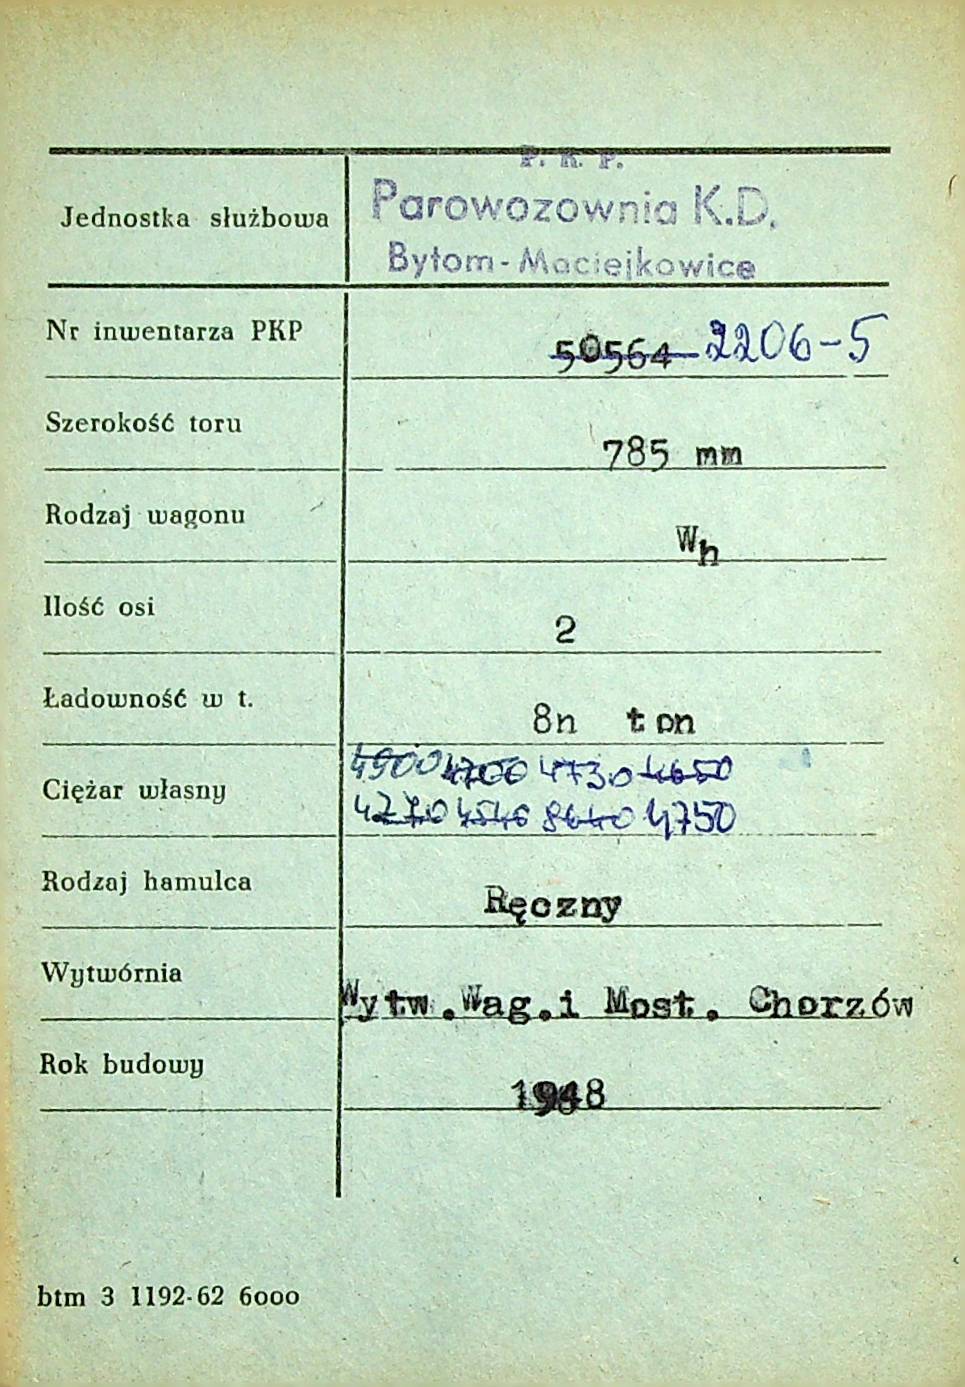 P. K. P.
Jednostka służbowa Parowozownia K.D.
Bytom-Maciejkowice
Nr inwentarza PKP 50564 2206-5
Szerokość toru 785 mm
Rodzaj wagonu Wh
Ilość osi 2
Ładowność w t. 8n ton
4900 4700 4730 4650
Ciężar własny 4270 4540 8640 4750
Rodzaj hamulca Ręczny
Wytwórnia Wytw.Wag.i Most. Chorzów
Rok budowy 1948
btm 3 1192-62 6000